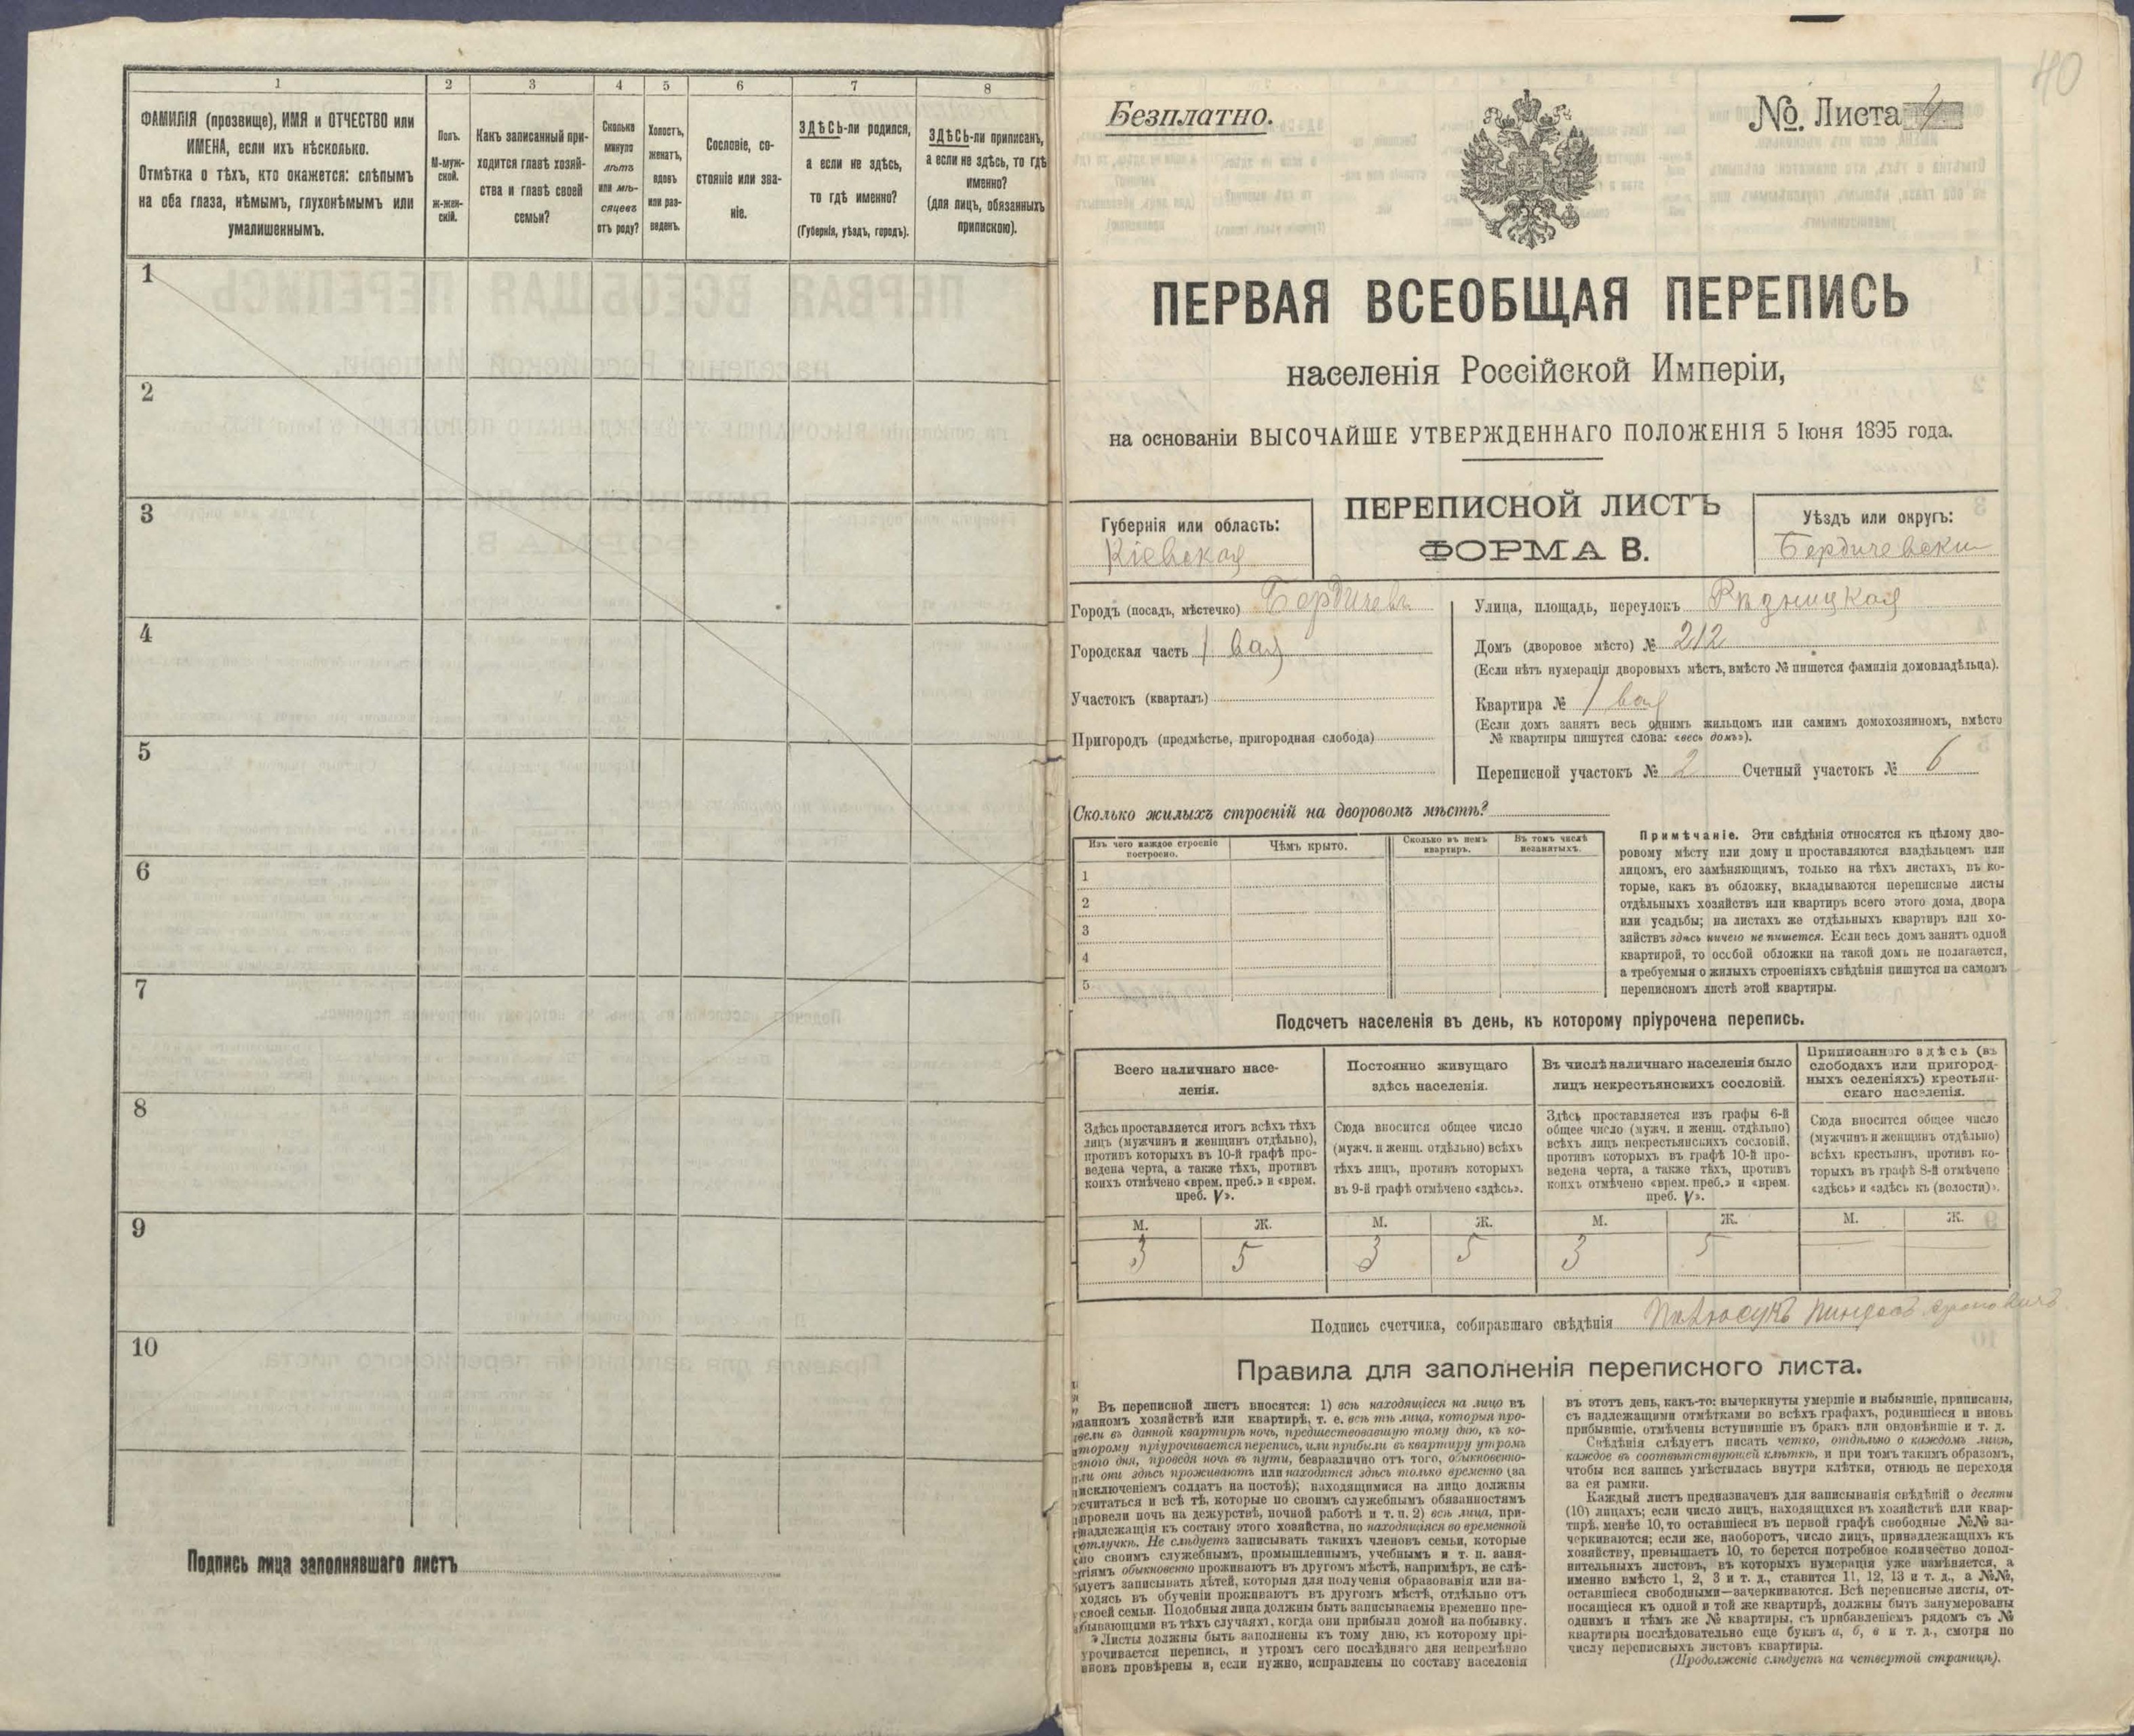 1
2
3
4
5
6
7
8
ФАМИЛІЯ (прозвище), ИМЯ и ОТЧЕСТВО или
ИМЕНА, если ихъ нѣсколько.
Отмѣтка о тѣхъ, кто окажется: слѣпымъ
на оба глаза, нѣмымъ, глухонѣмымъ или
умалишеннымъ.
Полъ.
М-муж-
ской.
Ж-жен-
скій.
Какъ записанный при-
ходится главѣ хозяй-
ства и главѣ своей
семьи?
Сколько
минуло
лѣтъ
или мѣ-
сяцевъ
отъ роду?
Холостъ,
женатъ,
вдовъ
или раз-
веденъ.
Сословіе, со-
стояніе или зва-
ніе.
ЗДѢСЬ-ли родился,
а если не здѣсь,
то гдѣ именно?
(Губернія, уѣздъ, городъ).
ЗДѢСЬ-ли приписанъ,
а если не здѣсь, то гдѣ
именно?
(для лицъ, обязанныхъ
припискою).
1
2
3
4
5
6
7
8
9
10
Подпись лица заполнявшаго листъ
40
Безплатно.
№ Листа 4
ПЕРВАЯ ВСЕОБЩАЯ ПЕРЕПИСЬ
населенія Россійской Имперіи,
на основаніи ВЫСОЧАЙШЕ УТВЕРЖДЕННАГО ПОЛОЖЕНІЯ 5 Іюня 1895 года.
Губернія или область:
Кіевская
ПЕРЕПИСНОЙ ЛИСТЪ
ФОРМА В.
Уѣздъ или округъ:
Бердичевски
Городъ (посадъ, мѣстечко) Бердичевъ
Городская часть 1 вая
Участокъ (кварталъ)
Пригородъ (предмѣстье, пригородная слобода)
Улица, площадь, переулокъ Рѣзницкая
Домъ (дворовое мѣсто) № 212
(Если нѣтъ нумераціи дворовыхъ мѣстъ, вмѣсто № пишется фамилія домовладѣльца).
Квартира № 1 вая
(Если домъ занятъ весь однимъ жильцомъ или самимъ домохозяиномъ, вмѣсто
№ квартиры пишутся слова: «весь домъ»).
Переписной участокъ № 2 Счетный участокъ № 6
Сколько жилыхъ строеній на дворовомъ мѣстѣ?
Изъ чего каждое строеніе
построено.
Чѣмъ крыто.
Сколько въ немъ
квартиръ.
Въ томъ числѣ
незанятыхъ.
1
2
3
4
5
Примѣчаніе. Эти свѣдѣнія относятся къ цѣлому дво-
ровому мѣсту или дому и проставляются владѣльцемъ или
лицомъ, его замѣняющимъ, только на тѣхъ листахъ, въ ко-
торые, какъ въ обложку, вкладываются переписные листы
отдѣльныхъ хозяйствъ или квартиръ всего этого дома, двора
или усадьбы; на листахъ же отдѣльныхъ квартиръ или хо-
зяйствъ здѣсь ничего не пишется. Если весь домъ занятъ одной
квартирой, то особой обложки на такой домъ не полагается,
а требуемыя о жилыхъ строеніяхъ свѣдѣнія пишутся на самомъ
переписномъ листѣ этой квартиры.
Подсчетъ населенія въ день, къ которому пріурочена перепись.
Всего наличнаго насе-
ленія.
Постоянно живущаго
здѣсь населенія.
Въ числѣ наличнаго населенія было
лицъ некрестьянскихъ сословій.
Приписаннаго здѣсь (въ
слободахъ или пригород-
ныхъ селеніяхъ) крестьян-
скаго населенія.
Здѣсь проставляется итогъ всѣхъ тѣхъ
лицъ (мужчинъ и женщинъ отдѣльно),
противъ которыхъ въ 10-й графѣ про-
ведена черта, а также тѣхъ, противъ
коихъ отмѣчено «врем. преб.» и «врем.
преб. V».
Сюда вносится общее число
(мужч. и женщ. отдѣльно) всѣхъ
тѣхъ лицъ, противъ которыхъ
въ 9-й графѣ отмѣчено «здѣсь».
Здѣсь проставляется изъ графы 6-й
общее число (мужч. и женщ. отдѣльно)
всѣхъ лицъ некрестьянскихъ сословій,
противъ которыхъ въ графѣ 10-й про-
ведена черта, а также тѣхъ, противъ
коихъ отмѣчено «врем. преб.» и «врем.
преб. V».
Сюда вносится общее число
(мужчинъ и женщинъ отдѣльно)
всѣхъ крестьянъ, противъ ко-
торыхъ въ графѣ 8-й отмѣчено
«здѣсь» и «здѣсь къ (волости)».
М. Ж. М. Ж. М. Ж. М. Ж.
3 5 3 5 3 5 — —
Подпись счетчика, собиравшаго свѣдѣнія
Правила для заполненія переписного листа.
Въ переписной листъ вносятся: 1) всѣ находящіеся на лицо въ
данномъ хозяйствѣ или квартирѣ, т. е. всѣ тѣ лица, которыя про-
вели въ данной квартирѣ ночь, предшествовавшую тому дню, къ ко-
торому пріурочивается перепись, или прибыли въ квартиру утромъ
этого дня, проведя ночь въ пути, безразлично отъ того, обыкновенно-
ли они здѣсь проживаютъ или находятся здѣсь только временно (за
исключеніемъ солдатъ на постоѣ); находящимися на лицо должны
считаться и всѣ тѣ, которые по своимъ служебнымъ обязанностямъ
провели ночь на дежурствѣ, ночной работѣ и т. п. 2) всѣ лица, при-
надлежащія къ составу этого хозяйства, но находящіяся во временной
отлучкѣ. Не слѣдуетъ записывать такихъ членовъ семьи, которые
по своимъ служебнымъ, промышленнымъ, учебнымъ и т. п. заня-
тіямъ обыкновенно проживаютъ въ другомъ мѣстѣ, напримѣръ, не слѣ-
дуетъ записывать дѣтей, которыя для полученія образованія или на-
ходясь въ обученіи проживаютъ въ другомъ мѣстѣ, отдѣльно отъ
своей семьи. Подобныя лица должны быть записываемы временно пре-
бывающими въ тѣхъ случаяхъ, когда они прибыли домой на побывку.
Листы должны быть заполнены къ тому дню, къ которому прі-
урочивается перепись, и утромъ сего послѣдняго дня непремѣнно
вновь провѣрены и, если нужно, исправлены по составу населенія
въ этотъ день, какъ-то: вычеркнуты умершіе и выбывшіе, приписаны,
съ надлежащими отмѣтками во всѣхъ графахъ, родившіеся и вновь
прибывшіе, отмѣчены вступившіе въ бракъ или овдовѣвшіе и т. д.
Свѣдѣнія слѣдуетъ писать четко, отдѣльно о каждомъ лицѣ,
каждое въ соотвѣтствующей клѣткѣ, и при томъ такимъ образомъ,
чтобы вся запись умѣстилась внутри клѣтки, отнюдь не переходя
за ея рамки.
Каждый листъ предназначенъ для записыванія свѣдѣній о десяти
(10) лицахъ; если число лицъ, находящихся въ хозяйствѣ или квар-
тирѣ, менѣе 10, то оставшіеся въ первой графѣ свободные №№ за-
черкиваются; если же, наоборотъ, число лицъ, принадлежащихъ къ
хозяйству, превышаетъ 10, то берется потребное количество допол-
нительныхъ листовъ, въ которыхъ нумерація уже измѣняется, а
именно вмѣсто 1, 2, 3 и т. д., ставится 11, 12, 13 и т. д., а №№,
оставшіеся свободными—зачеркиваются. Всѣ переписные листы, от-
носящіеся къ одной и той же квартирѣ, должны быть занумерованы
однимъ и тѣмъ же № квартиры, съ прибавленіемъ рядомъ съ №
квартиры послѣдовательно еще буквъ а, б, в и т. д., смотря по
числу переписныхъ листовъ квартиры.
(Продолженіе слѣдуетъ на четвертой страницѣ).